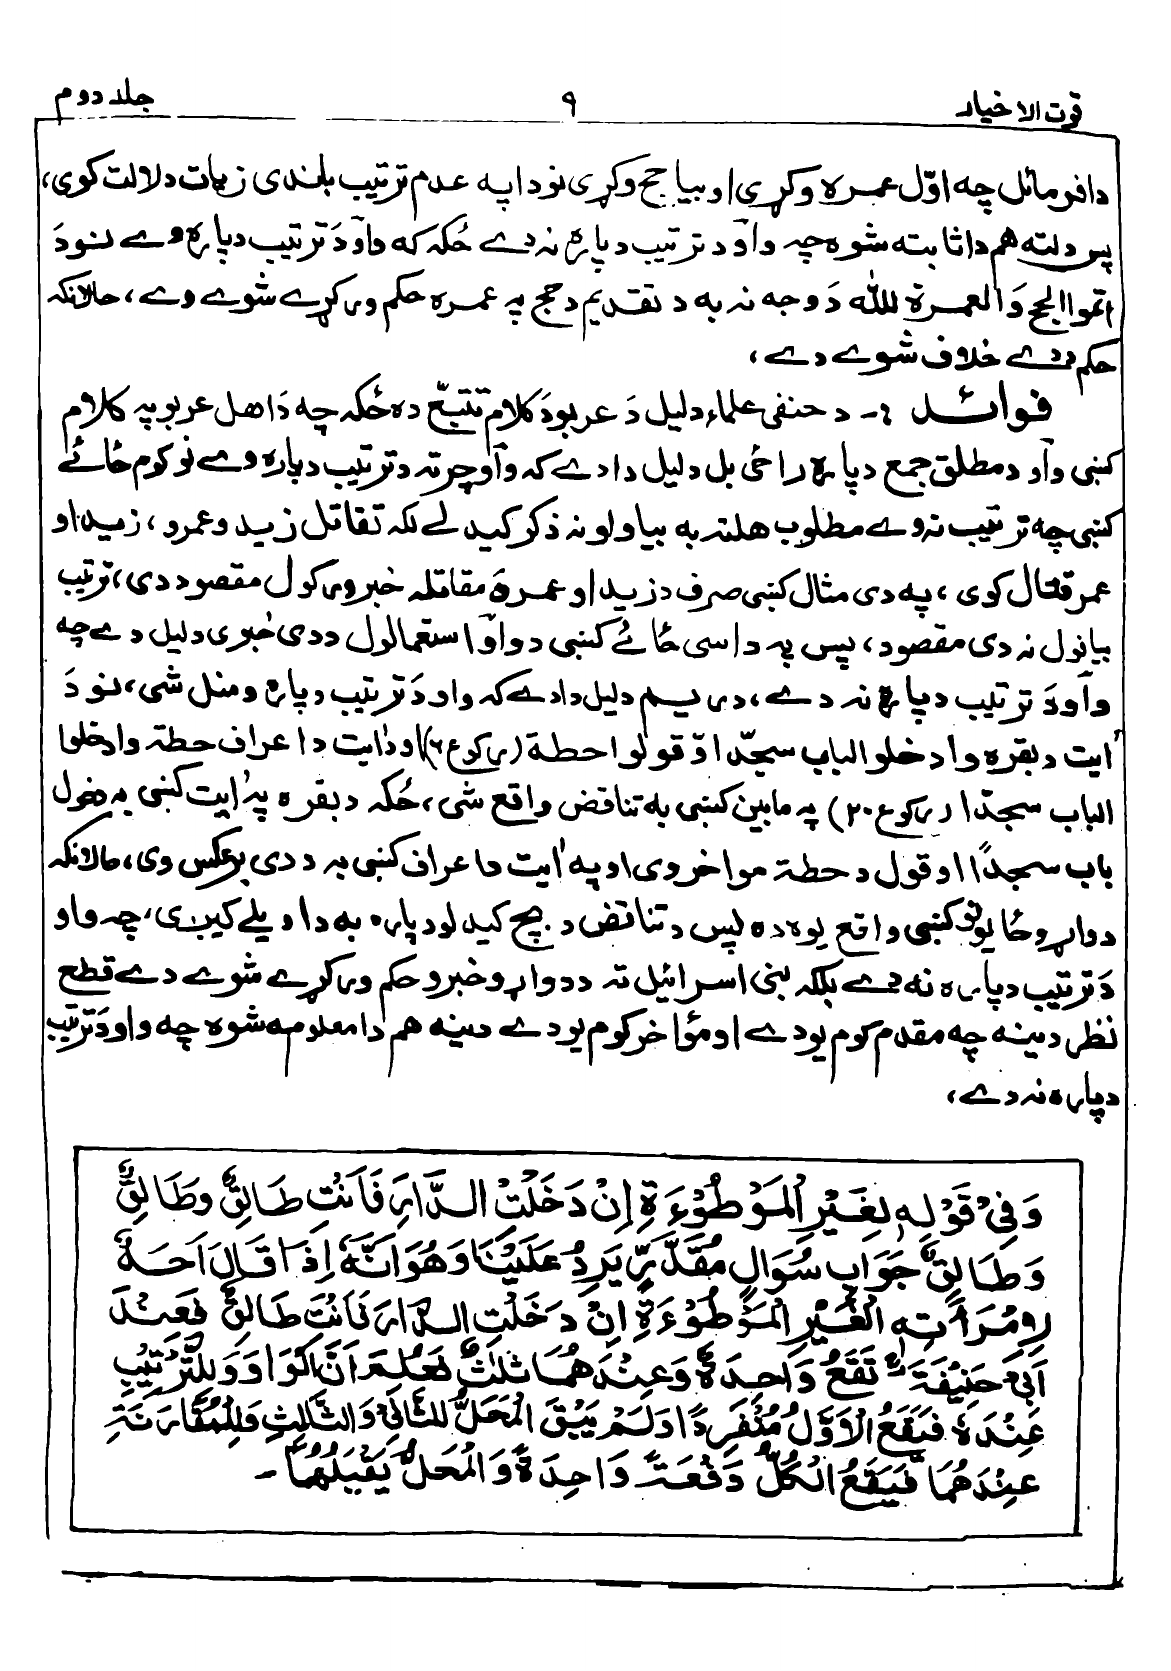 قوت الاخیار ۹ جلد دوم
دافرمائل چه اوّل عمره وکړی او بیا حج وکړی نو دا په عدم ترتیب باندی زیات دلالت کوی،
پس دلته هم دا ثابته شوه چه واو د ترتیب دپاره نه دے ځکه که واو دَ ترتیب دپاره وے نو دَ
اتموا الحج وَالعمرة للله دَ وجه نه به د تقدیم د حج په عمره حکم ورکړے شوے وے، حالانکه
حکم ددے خلاف شوے دے،
فوائد :- د حنفی علماء دلیل دَ عربو دَ کلام تتبّع ده ځکه چه دَ اهل عربو په کلام
کښی واو د مطلق جمع دپاره راځی بل دلیل دا دے که واو چرته د ترتیب دپاره وے نو کوم ځائے
کښی چه ترتیب نه وے مطلوب هلته به بیا واو نه ذکر کیدلے لکه تقاتل زید وعمرو، زید او
عمر قتال کوی، په دی مثال کښی صرف د زید او عمرو مقاتله خبر ورکول مقصود دی، ترتیب
بیانول نه دی مقصود، پس په داسی ځائے کښی د واو استعمالول ددی خبری دلیل دے چه
واو دَ ترتیب دپاره نه دے، دریم دلیل دا دے که واو دَ ترتیب دپاره ومنل شی، نو دَ
اٰیت د بقره وادخلوا الباب سجّدا وّقولوا حطة (رکوع ۶) او دٰایت د اعراف حطة وادخلوا
الباب سجدّا (رکوع ۲۰) په مابین کښی به تناقض واقع شی، ځکه د بقره په اٰیت کښی به دخول
باب سجدًا او قول د حطة مواخر وی او په اٰیت د اعراف کښی به ددی برعکس وی، حالانکه
دواړو ځایونو کښی واقع یوه ده پس د تناقض د بچ کیدلو دپاره به دا ویلے کیږی، چه واو
دَ ترتیب دپاره نه دے بلکه بنی اسرائیل ته ددواړو خبرو حکم ورکړے شوے دے قطع
نظر دینه چه مقدم کوم یو دے او مؤاخر کوم یو دے دینه هم دا معلومه شوه چه واو دَ ترتیب
دپاره نه دے،
وَفِیْ قَوْلِهٖ لِغَیْرِ الْمَوْطُوْءَةِ اِنْ دَخَلْتِ الدَّارَ فَاَنْتِ طَالِقٌ وَطَالِقٌ
وَطَالِقٌ جَوَابُ سُوَالٍ مُقَدَّرٍ یَرِدُ عَلَیْنَا وَهُوَ اَنَّهٗ اِذَا قَالَ اَحَدٌ
لِاِمْرَأَتِهِ الْغَیْرِ الْمَوْطُوْءَةِ اِنْ دَخَلْتِ الدَّارَ فَاَنْتِ طَالِقٌ فَعِنْدَ
اَبِیْ حَنِیْفَةَ تَقَعُ وَاحِدَةٌ وَعِنْدَهُمَا ثَلٰثٌ فَعُلِمَ اَنَّ الْوَاوَ لِلتَّرْتِیْبِ
عِنْدَهٗ فَیَقَعُ الْاَوَّلُ مُنْفَرِدًا وَلَمْ یَبْقَ الْمَحَلُّ لِلثَّانِیْ وَالثَّالِثِ وَلِلْمُقَارَنَةِ
عِنْدَهُمَا فَیَقَعُ الْکُلُّ دَفْعَةً وَاحِدَةً وَالْمَحَلُّ یَقْبَلُهَا -